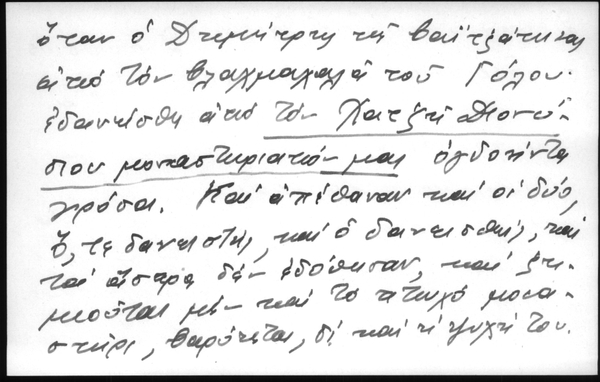 ὅταν ὁ Δημήτρης τῆς
ἀπό τὸν βλαχμαχαλᾶ τοῦ Γόλου.
ἐδανείσθη ἀπό τὸν Χατζῆ Διονύ-
σιου μοναστηριακόν μας ὀγδοήντα
γρόσια. Καί ἀπέθαναν καί οἱ δύο,
ὅ, τε δανειστής, καὶ ὁ δανεισθείς, καί
τά ἄσπρα δέν ἐδόθησαν, καί ζη-
μιοῦται μέν καί τό πτωχό μονα-
στήρι, βαρύνεται, δέ καί ἡ ψυχή του.